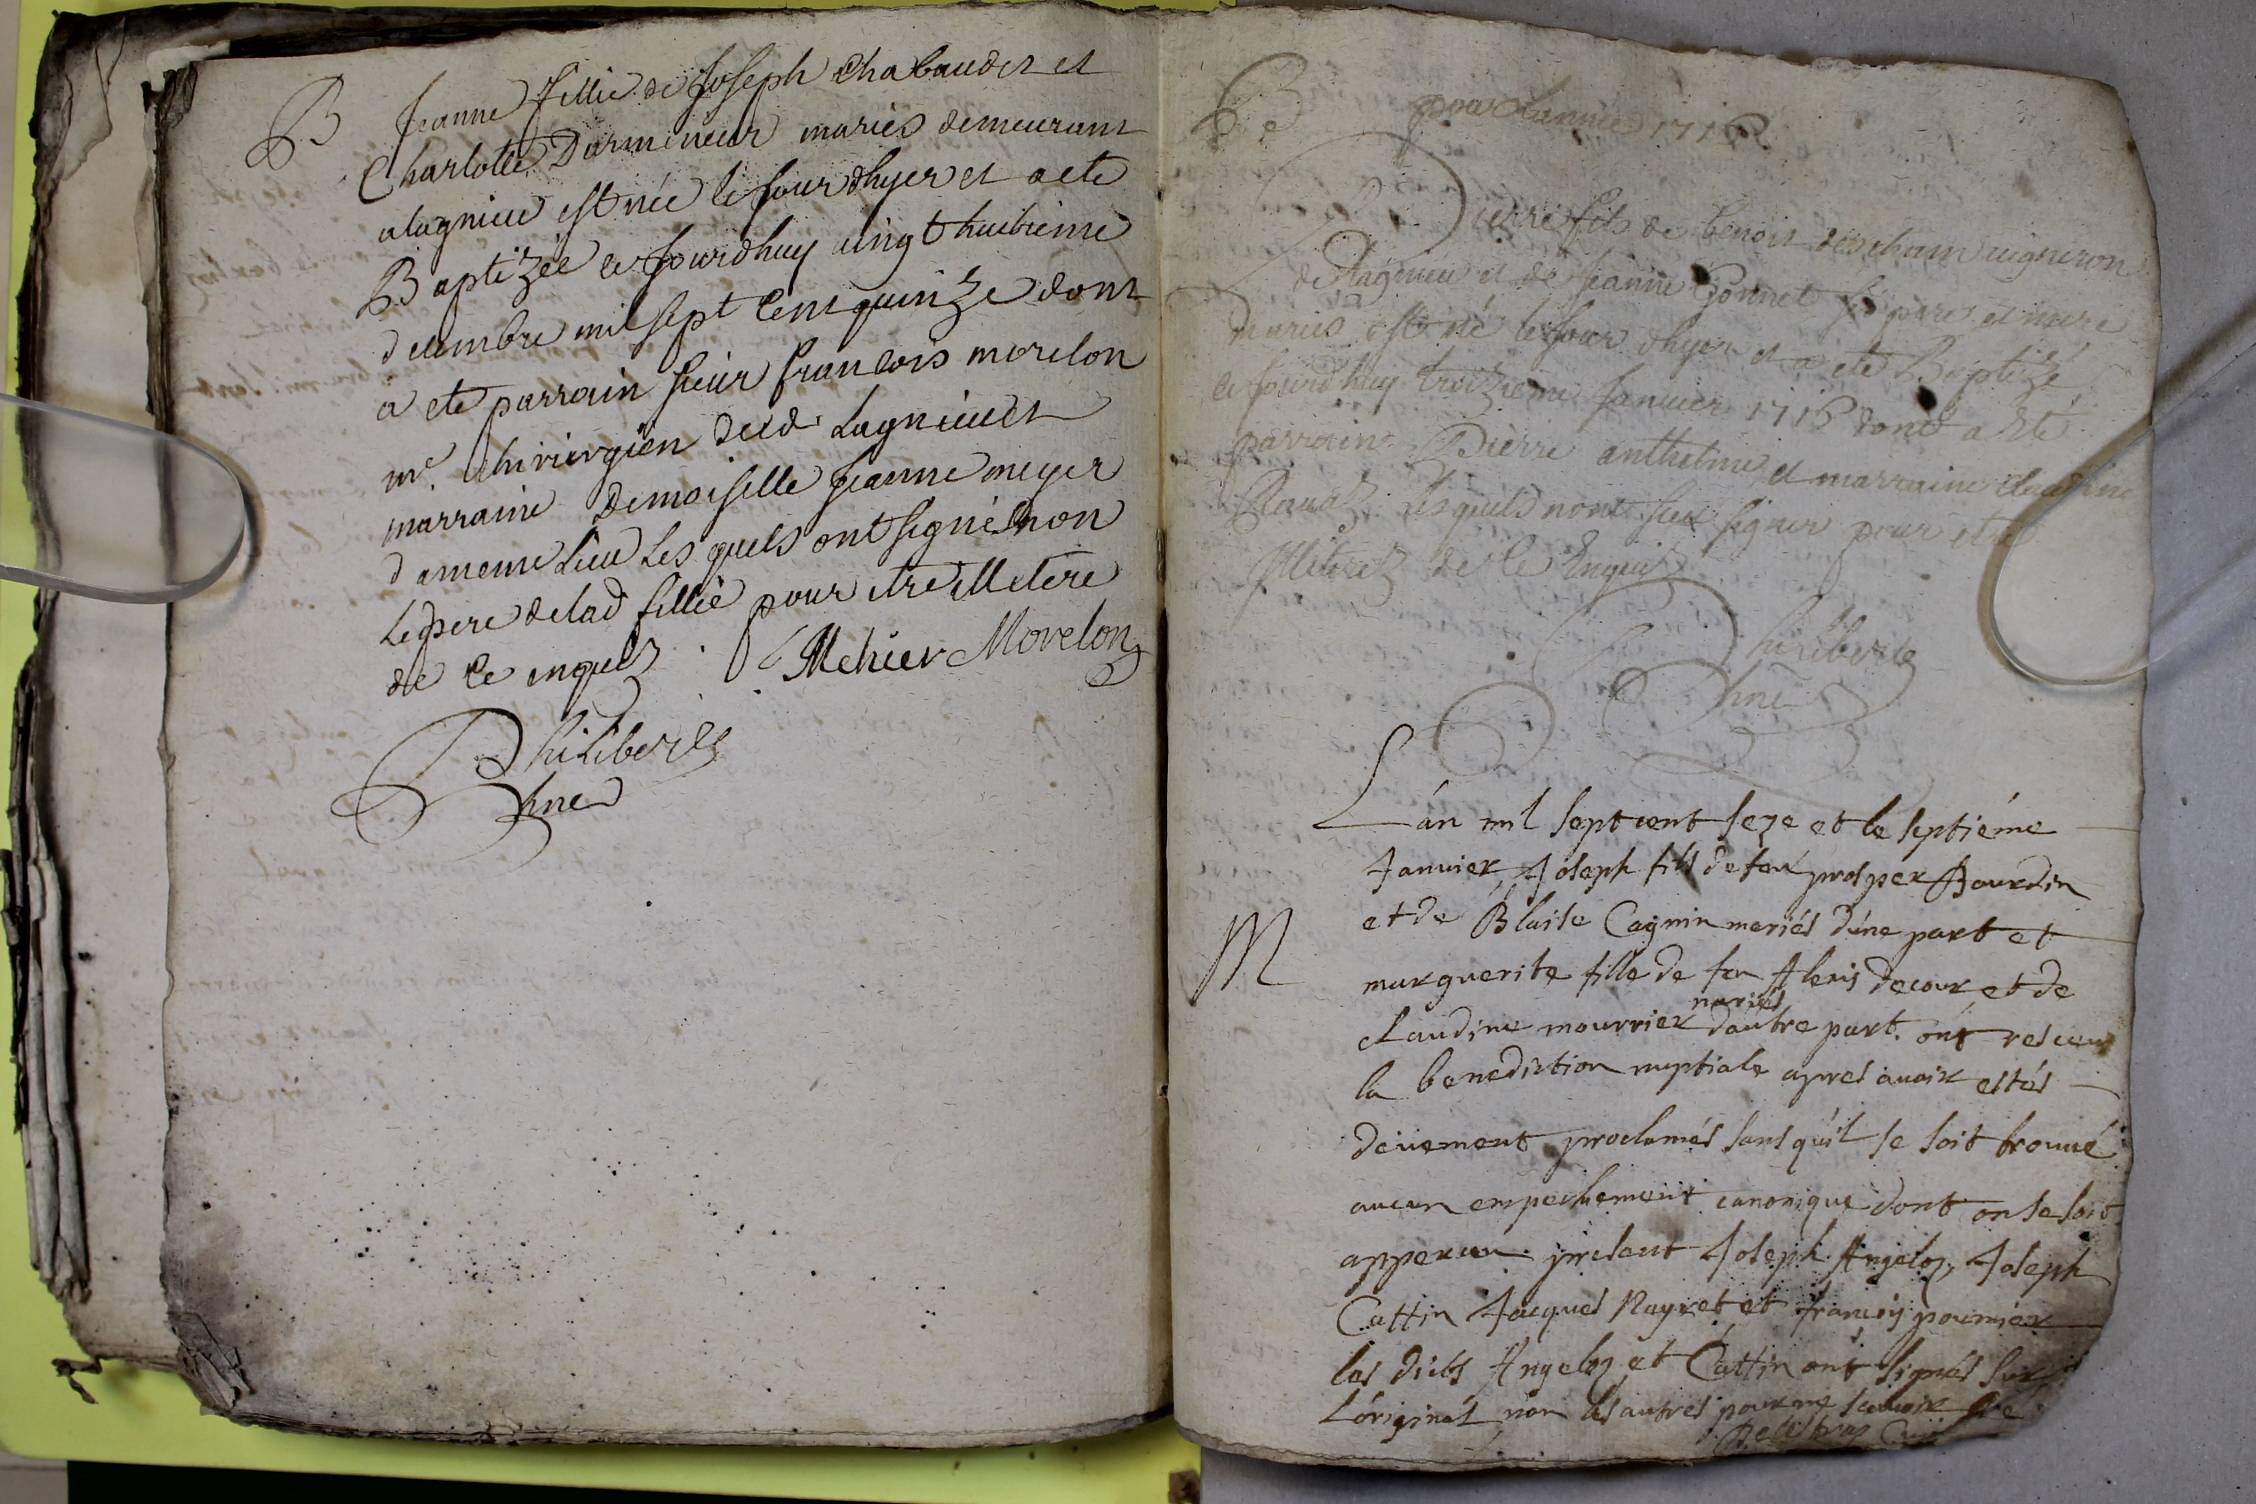 B Jeanne fillie de Joseph Chabaudet et
Charlotte Darmeneur mariés demeurant
a lagnieu est née le jour dhyer et a ete
Baptizée ce jourdhuy vingt huitieme
decembre mil sept cent quinze dont
a ete parrain sieur francois morelon
mr. chirurgien dud. Lagnieu et
marraine Demoiselle Jeanne meyer
d ameme lieu Les quels ont signé non
Le pere de lad fillie pour etre illetere
de ce enquis Mehier Morelon
Philiberts
B
pour Lannée 1716
Pierre fils de benoit descham vigneron
de Lagnieu et de Jeanne Gonnet ses pere et mere
mariés est né le jour dhyer et a ete Baptizé
ce jourdhuy troizieme Janvier 1716 dont a ete
parrain Pierre anthelme et marraine claudine
Lesquels nont sceu signer pour etre
Illiterez de ce Enquis
Philiberts
L'án mil sept cent seze et le septiéme
Janvier, Joseph fils de feu prosper Bourdin
et de Blaise Cagnin mariés d'úne part et
M
marguerite fille de feu Alexis decour et de
claudine mourrier mariés d'autre part. ónt resceus
la benediction nuptiale apres auoir estés
deüement proclamés sans qu'il se soit trouué
aucun empechement canonique dont on se soit
apperceu. présent Joseph Angelot, Joseph
Cattin Jacques Nayret et francois poumier
les dicts Angelot et Cattin ont signés sur
L'óriginal non les autres pour ne scauoir